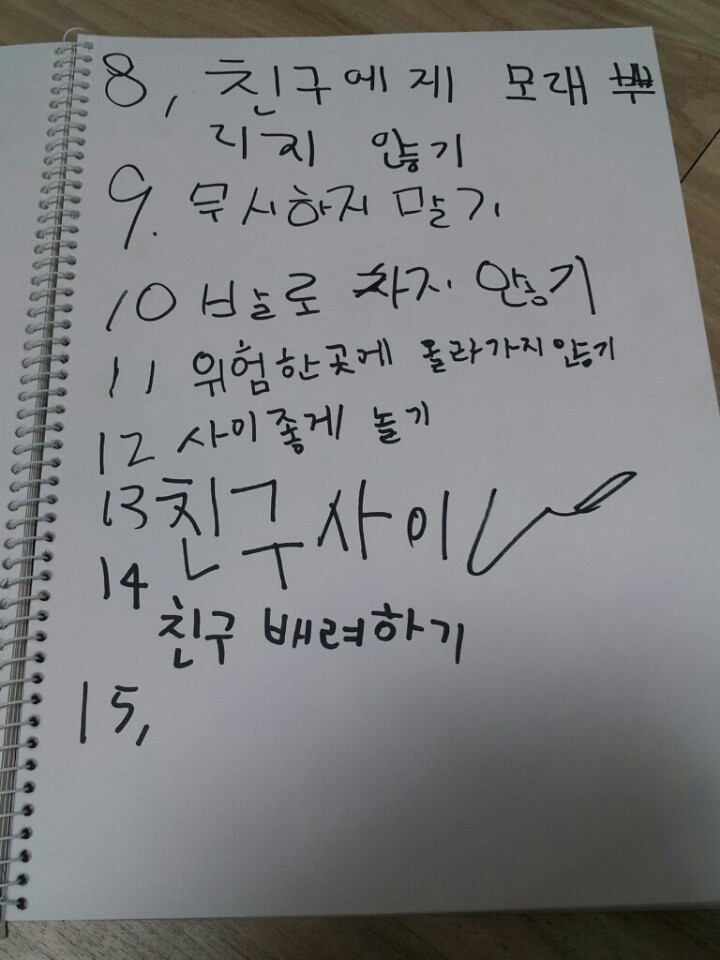 8, 친구에제 모래 뿌
리지 않기
9. 무시하지 말기
10 발로 차지 않기
11 위험한곳에 올라가지않기
12 사이좋게 놀기
13 친구사이
14
친구 배려하기
15,